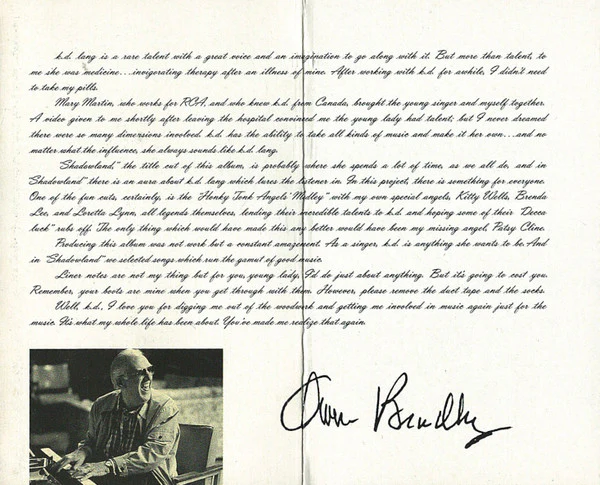 k.d. lang is a rare talent with a great voice and an imagination to go along with it. But more than talent, to
me she was medicine...invigorating therapy after an illness of mine. After working with k.d. for awhile, I didn't need
to take my pills.
Mary Martin, who works for RCA, and who knew k.d. from Canada, brought the young singer and myself together.
A video given to me shortly after leaving the hospital convinced me the young lady had talent; but I never dreamed
there were so many dimensions involved. k.d. has the ability to take all kinds of music and make it her own...and no
matter what the influence, she always sounds like k.d. lang.
"Shadowland," the title cut of this album, is probably where she spends a lot of time, as we all do, and in
"Shadowland" there is an aura about k.d. lang which lures the listener in. In this project, there is something for everyone.
One of the fun cuts, certainly, is the "Honky Tonk Angels' Medley" with my own special angels, Kitty Wells, Brenda
Lee, and Loretta Lynn, all legends themselves, lending their incredible talents to k.d. and hoping some of their "Decca
luck" rubs off. The only thing which would have made this any better would have been my missing angel, Patsy Cline.
Producing this album was not work but a constant amazement. As a singer, k.d. is anything she wants to be. And
in "Shadowland" we selected songs which run the gamut of good music.
Liner notes are not my thing but for you, young lady, I'd do just about anything. But it's going to cost you.
Remember, your boots are mine when you get through with them. However, please remove the duct tape and the socks.
Well, k.d., I love you for digging me out of the woodwork and getting me involved in music again just for the
music. It's what my whole life has been about. You've made me realize that again.
Owen Bradley